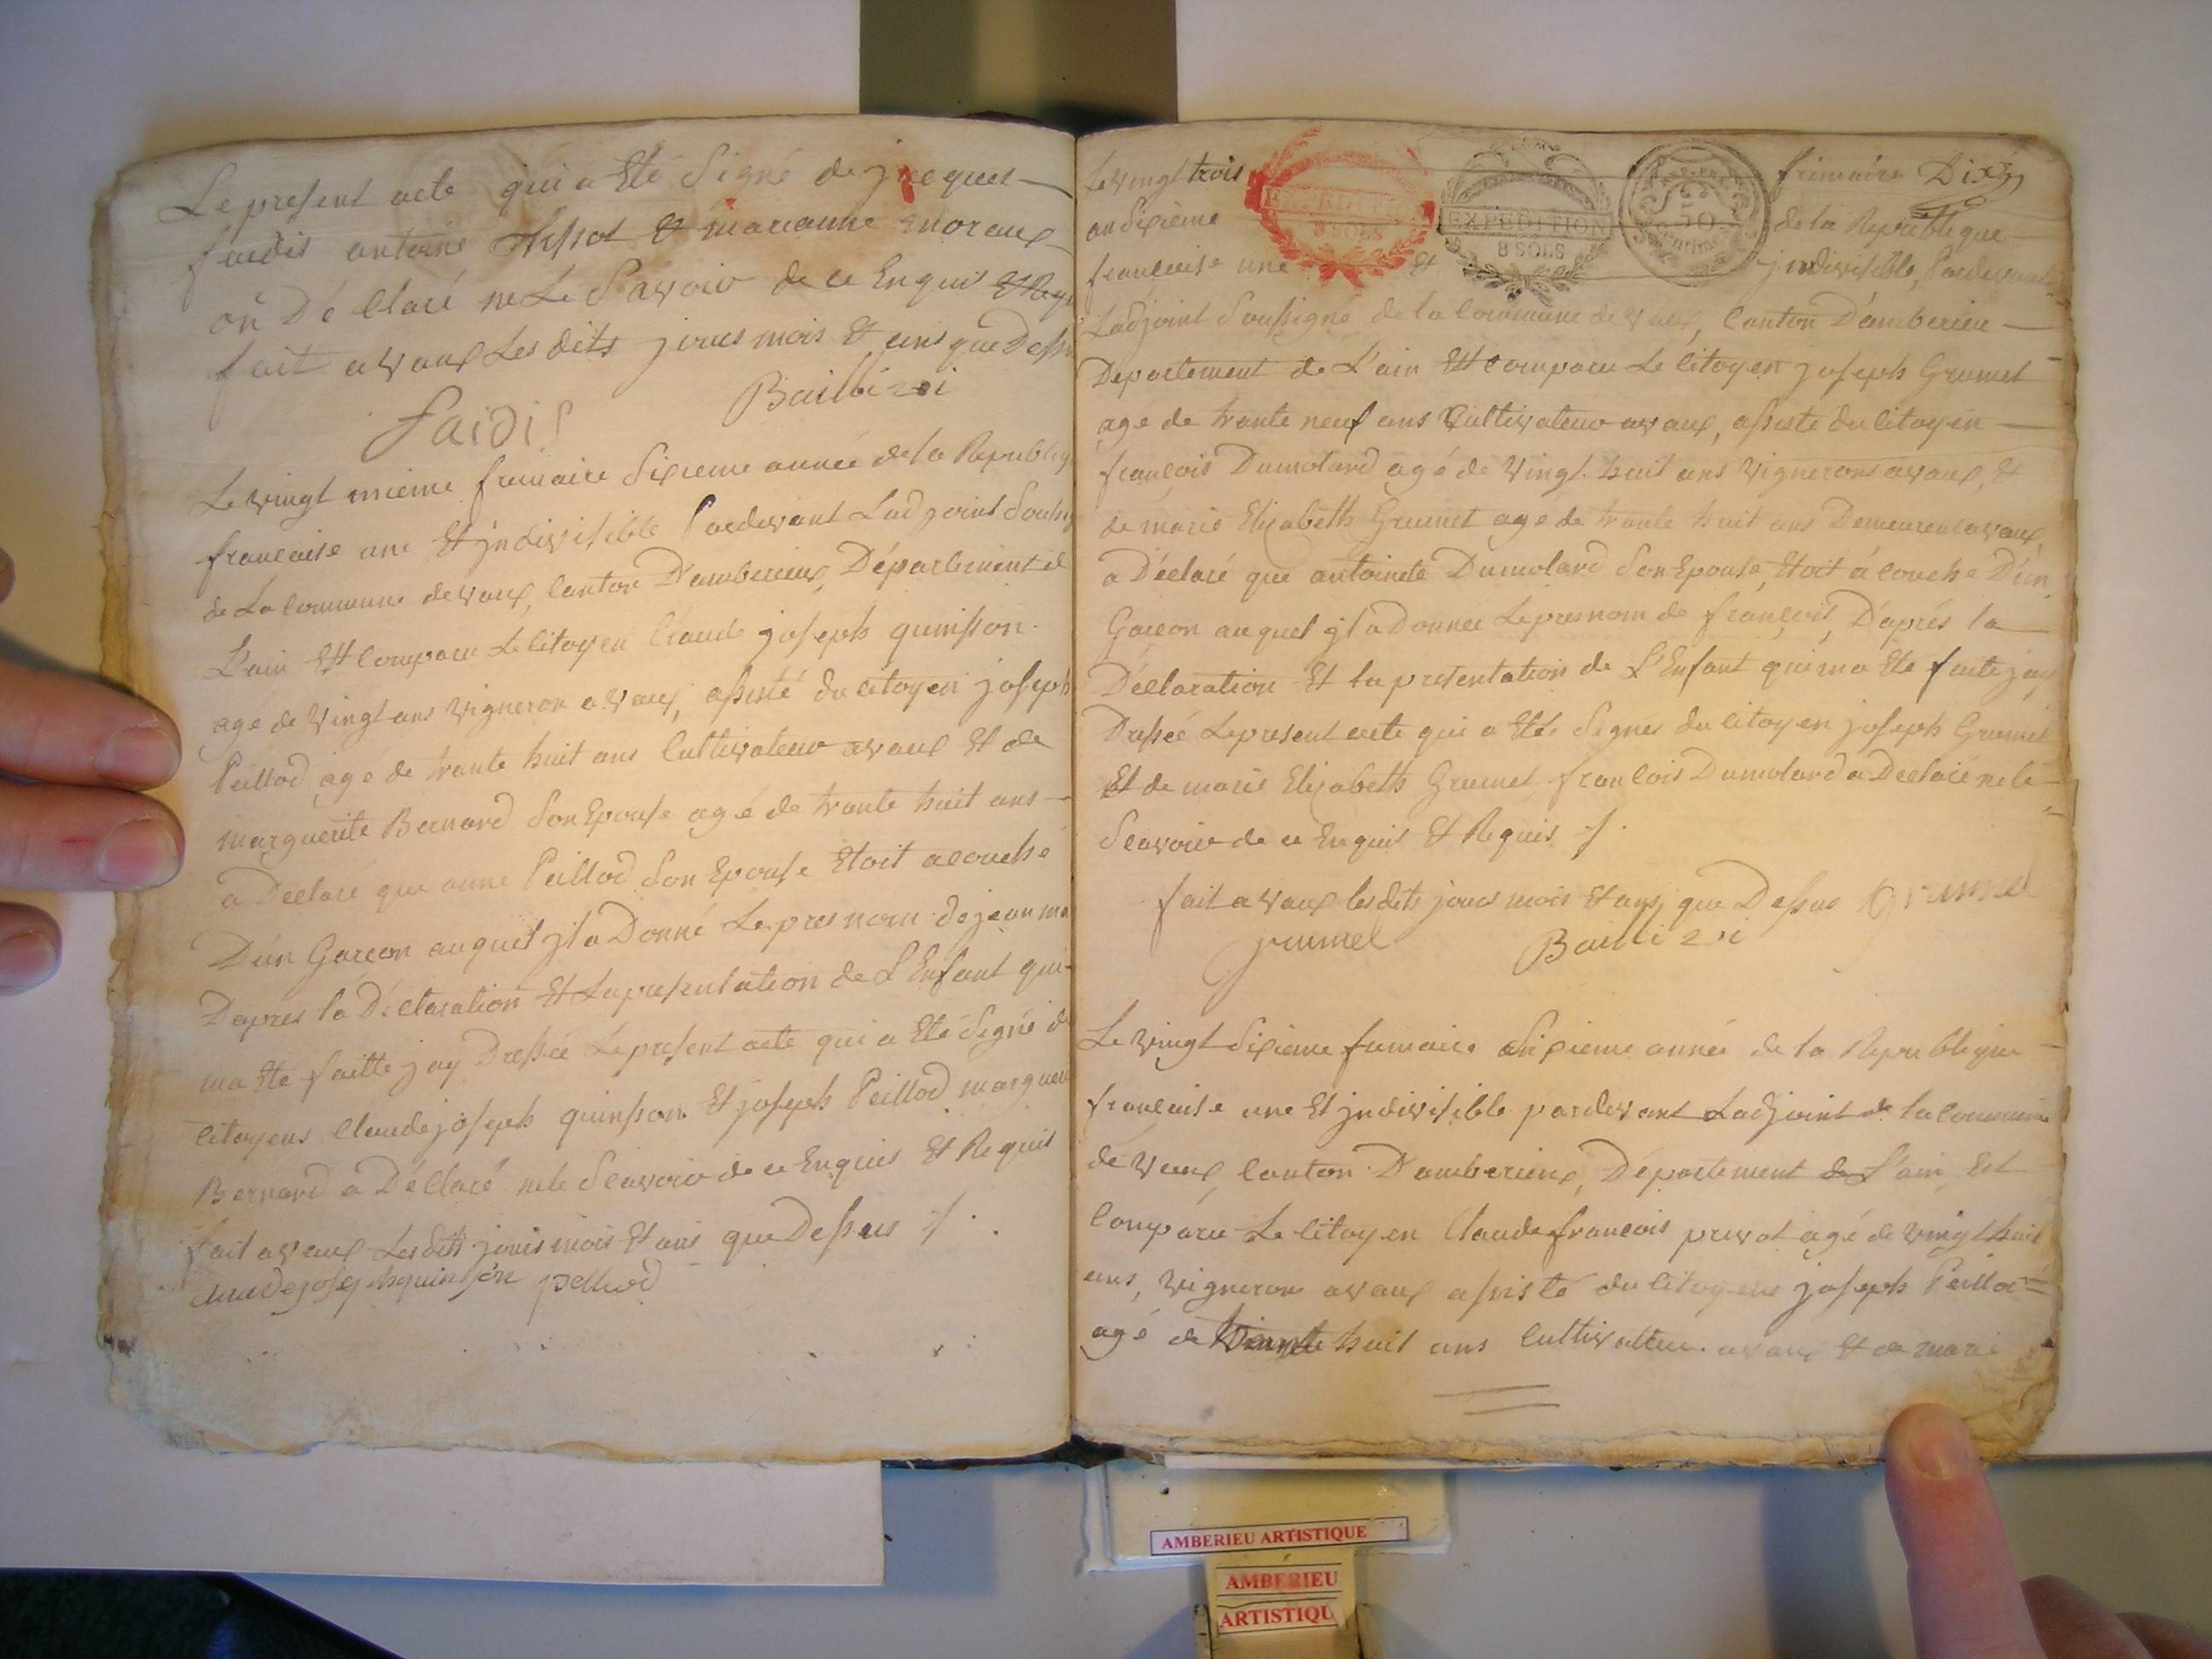 Le present acte qui a Eté Signé de jacques
faidis antoine Tissot Et marianne moraux
on Déclaré ne Le Savoir de ce Enquis Et Requ
fait a vaux Les dits jours mois Et ans que Dessu
faidis Bailli
Le vingt unieme frimaire Sixieme année de la Republiq
francaise une Et jndivisible Pardevant Ladjoint Soussig
de La Commune de vaux, Canton D'amberieux, Département de
L'ain Est Comparu Le Citoyen Claude joseph quinsson
agé de Vingt ans Vigneron a Vaux, assisté du Citoyen joseph
Peillod agé de trante huit ans Cultivateur a vaux Et de
Marguerite Bernard Son Epouse agé de trante huit ans
a Declaré que anne Peillod Son Epouse Etoit acouché
D'un Garcon auquel jl a Donné Le presnom de jean ma
D'apres la Déclaration Et La presentation de L'Enfant qui
ma Eté faitte jay Dressée Le present acte qui a Eté Signé de
Citoyens Claude joseph quinsson Et joseph Peillod marguer
Bernard a Déclaré ne le Scavoir de ce Enquis Et Requis
fait a vaux Les dits jours mois Et ans que Dessus
claude joseph quinson peillod
Le vingt trois frimaire Dix
an Sixième de la Republique
francaise une Et jndivisible, Pardevant
Ladjoint Soussigné de la Commune de vaux, Canton D'amberieu
Departement de L'ain Est Comparu Le Citoyen joseph Grumet
agé de trante neuf ans Cultivateur a vaux, assisté du Citoyen
françois Dumolard agé de Vingt huit ans Vignerons a vaux, Et
de marie Elizabeth Grumet age de trante huit ans Demeurent a vaux,
a Déclaré que antoinete Dumolard Son Epouse, Etoit acouche D'un
Garcon auquel jl a Donnée Le presnom de françois, D'aprés la
Déclaration Et la presentation de L'Enfant qui ma Eté faite jay
Dressée Le present acte qui a Eté Signés du Citoyen joseph Grumet
Et de marie Elizabeth Grumet francois Dumolard a Declaré ne le
Scavoir de ce Enquis Et Requis
fait a vaux les dits jours mois Et ans que Dessus Grumel
grumel Bailli
EXPÉDITION
8 SOLS
EXPÉDITION
8 SOLS
50
Centimes
Le vingt Sixieme frimaire Sixieme année de la Republique
francaise une Et jndivisible pardevant Ladjoint de la Commune
de vaux, Canton D'amberieux, Département de L'ain, Est
Comparu Le Citoyen Claude francois privot agé de vingt huit
ans, Vigneron a vaux assisté du Citoyens joseph Peillod
agé de trante huit ans Cultivateur a vaux Et de marie
AMBERIEU ARTISTIQUE
AMBERIEU
ARTISTIQU